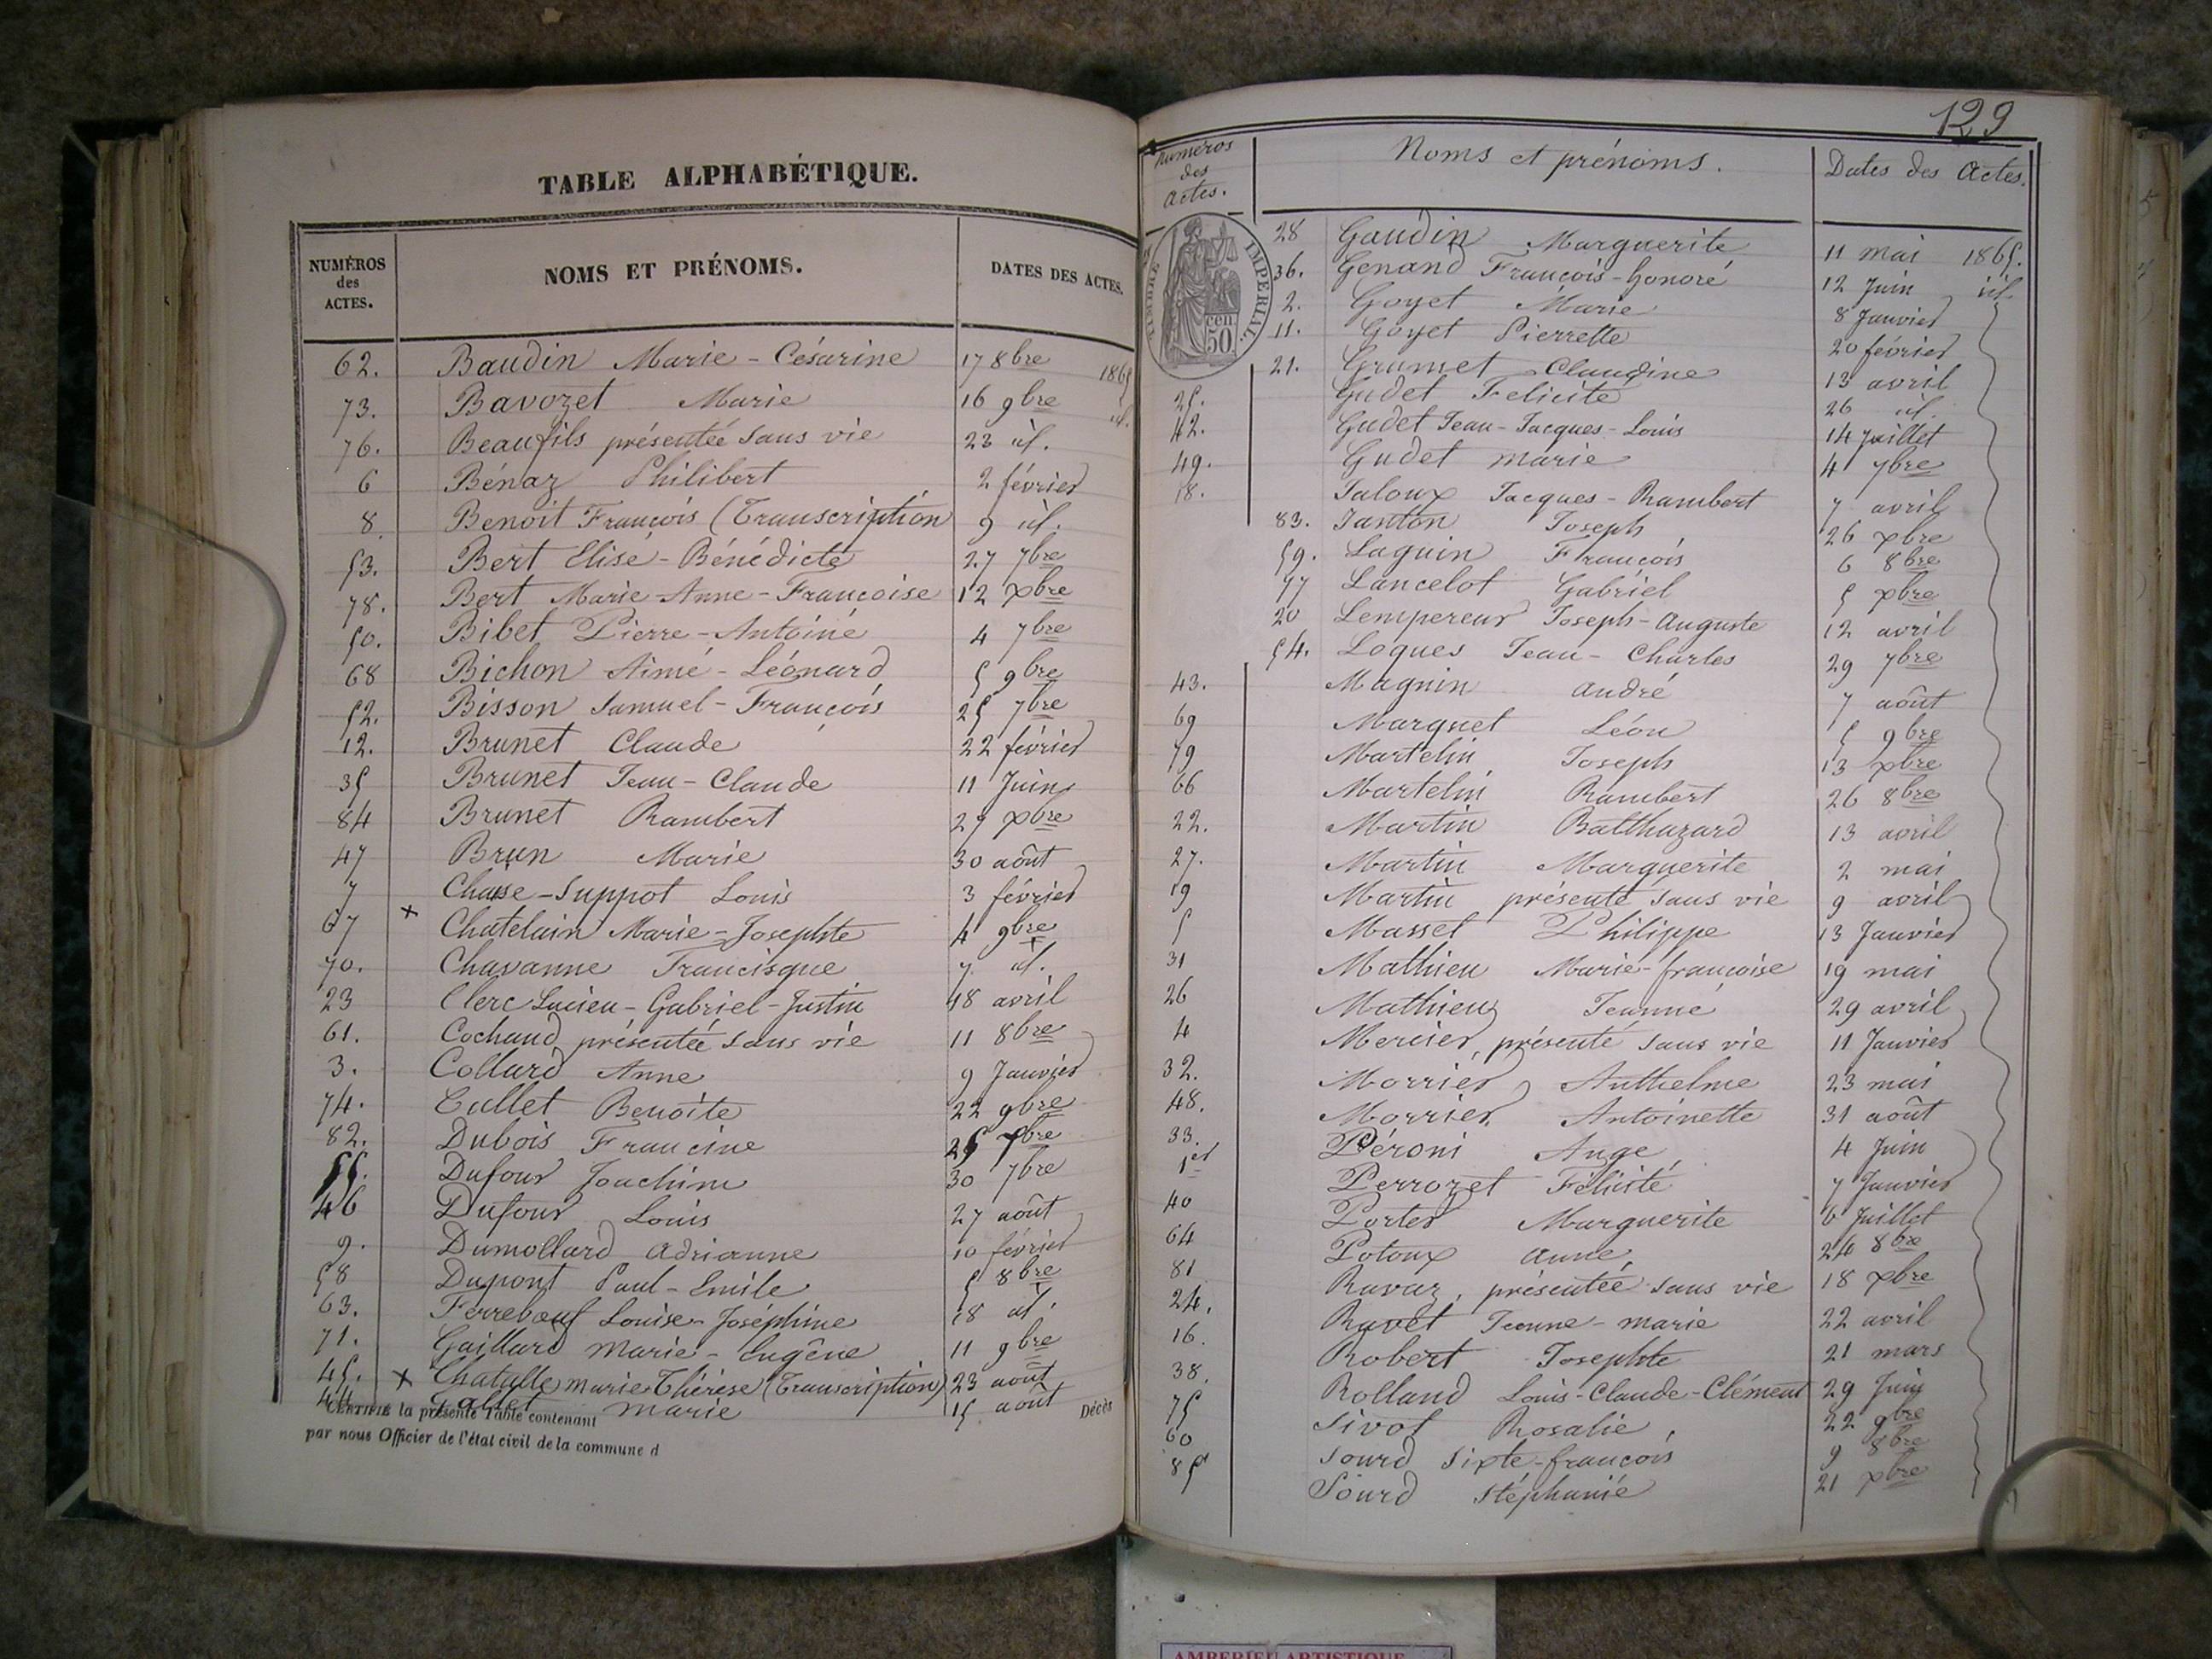 TABLE ALPHABÉTIQUE.
NUMÉROS des ACTES. NOMS ET PRÉNOMS. DATES DES ACTES.
62. Baudin Marie-Césarine 17 8bre 1865
73. Bavozet Marie 16 9bre id.
76. Beaufils présentée sans vie 23 id.
6 Bénaz Philibert 2 février
8. Benoit François (Transcription 9 id.
53. Bert Elise-Bénédicte 27 7bre
78. Bert Marie-Anne-Françoise 12 xbre
50. Bibet Pierre-Antoine 4 7bre
68 Bichon Aimé-Léonard 5 9bre
52. Bisson Samuel-François 25 7bre
12. Brunet Claude 22 février
35 Brunet Jean-Claude 11 Juin
84 Brunet Rambert 29 xbre
47 Brun Marie 30 août
7 Chaise-Suppot Louis 3 février
67 x Chatelain Marie-Josephte 4 9bre
70. Chavanne Francisque 7 id.
23 Clerc Lucien-Gabriel-Justin 18 avril
61. Cochaud présentée sans vie 11 8bre
3. Collard Anne 9 Janvier
74. Cullet Benoite 22 9bre
82. Dubois Francine 25 xbre
55. Dufour Joachim 30 7bre
46 Dufour Louis 27 août
9. Dumollard Adrianne 10 février
58 Dupont Paul-Emile 5 8bre
63. Ferrebœuf Louise-Joséphine 18 id.
71. Gaillard Marie-Eugêne 11 9bre
45. x Chatelle marie Thérèse (Transcription) 23 août
44. Fallet marie 15 août
CERTIFIÉ la présente Table contenant Décès
par nous Officier de l'état civil de la commune d
129
Numéros des Actes. Noms et prénoms. Dates des Actes.
TIMBRE IMPERIAL.
50 cen
28 Gaudin Marguerite 11 mai 1865.
36. Genand François-honoré 12 Juin id.
2. Goyet Marie 8 Janvier
11. Goyet Pierrette 20 février
21. Grumet Claudine 13 avril
25. Gudet Felicité 26 id.
42. Gudet Jean-Jacques-Louis 14 Juillet
49. Gudet marie 4 7bre
18. Jaloux Jacques-Rambert 7 avril
83. Janton Joseph 26 xbre
59. Laguin François 6 8bre
77 Lancelot Gabriel 5 xbre
20 Lempereur Joseph-Auguste 12 avril
54. Logues Jean-Charles 29 7bre
43. Magnin André 7 août
69 Marguet Léon 5 9bre
79 Martelin Joseph 13 xbre
66 Martelin Rambert 26 8bre
22. Martin Balthazard 13 avril
27. Martin Marguerite 2 mai
19 Martin présenté sans vie 9 avril
5 Masset Philippe 13 Janvier
31 Mathieu Marie-françoise 19 mai
26 Mathieu Jeanne 29 avril
4 Mercier, présenté sans vie 11 Janvier
32. Morrier Anthelme 23 mai
48. Morrier Antoinette 31 août
33. Péroni Ange 4 Juin
1er Perrozet Félicité 7 Janvier
40 Porter Marguerite 6 Juillet
64 Potoux Anne 24 8bre
81 Ravaz, présentée sans vie 18 xbre
24. Ravet Jeanne-marie 22 avril
16. Robert Josephte 21 mars
38. Rolland Louis-Claude-Clément 29 Juin
75 Sivot Rosalie 22 9bre
60 Sourd Sixte-françois 9 8bre
85 Sourd Stéphanie 21 xbre
AMBERIEU ARTISTIQUE